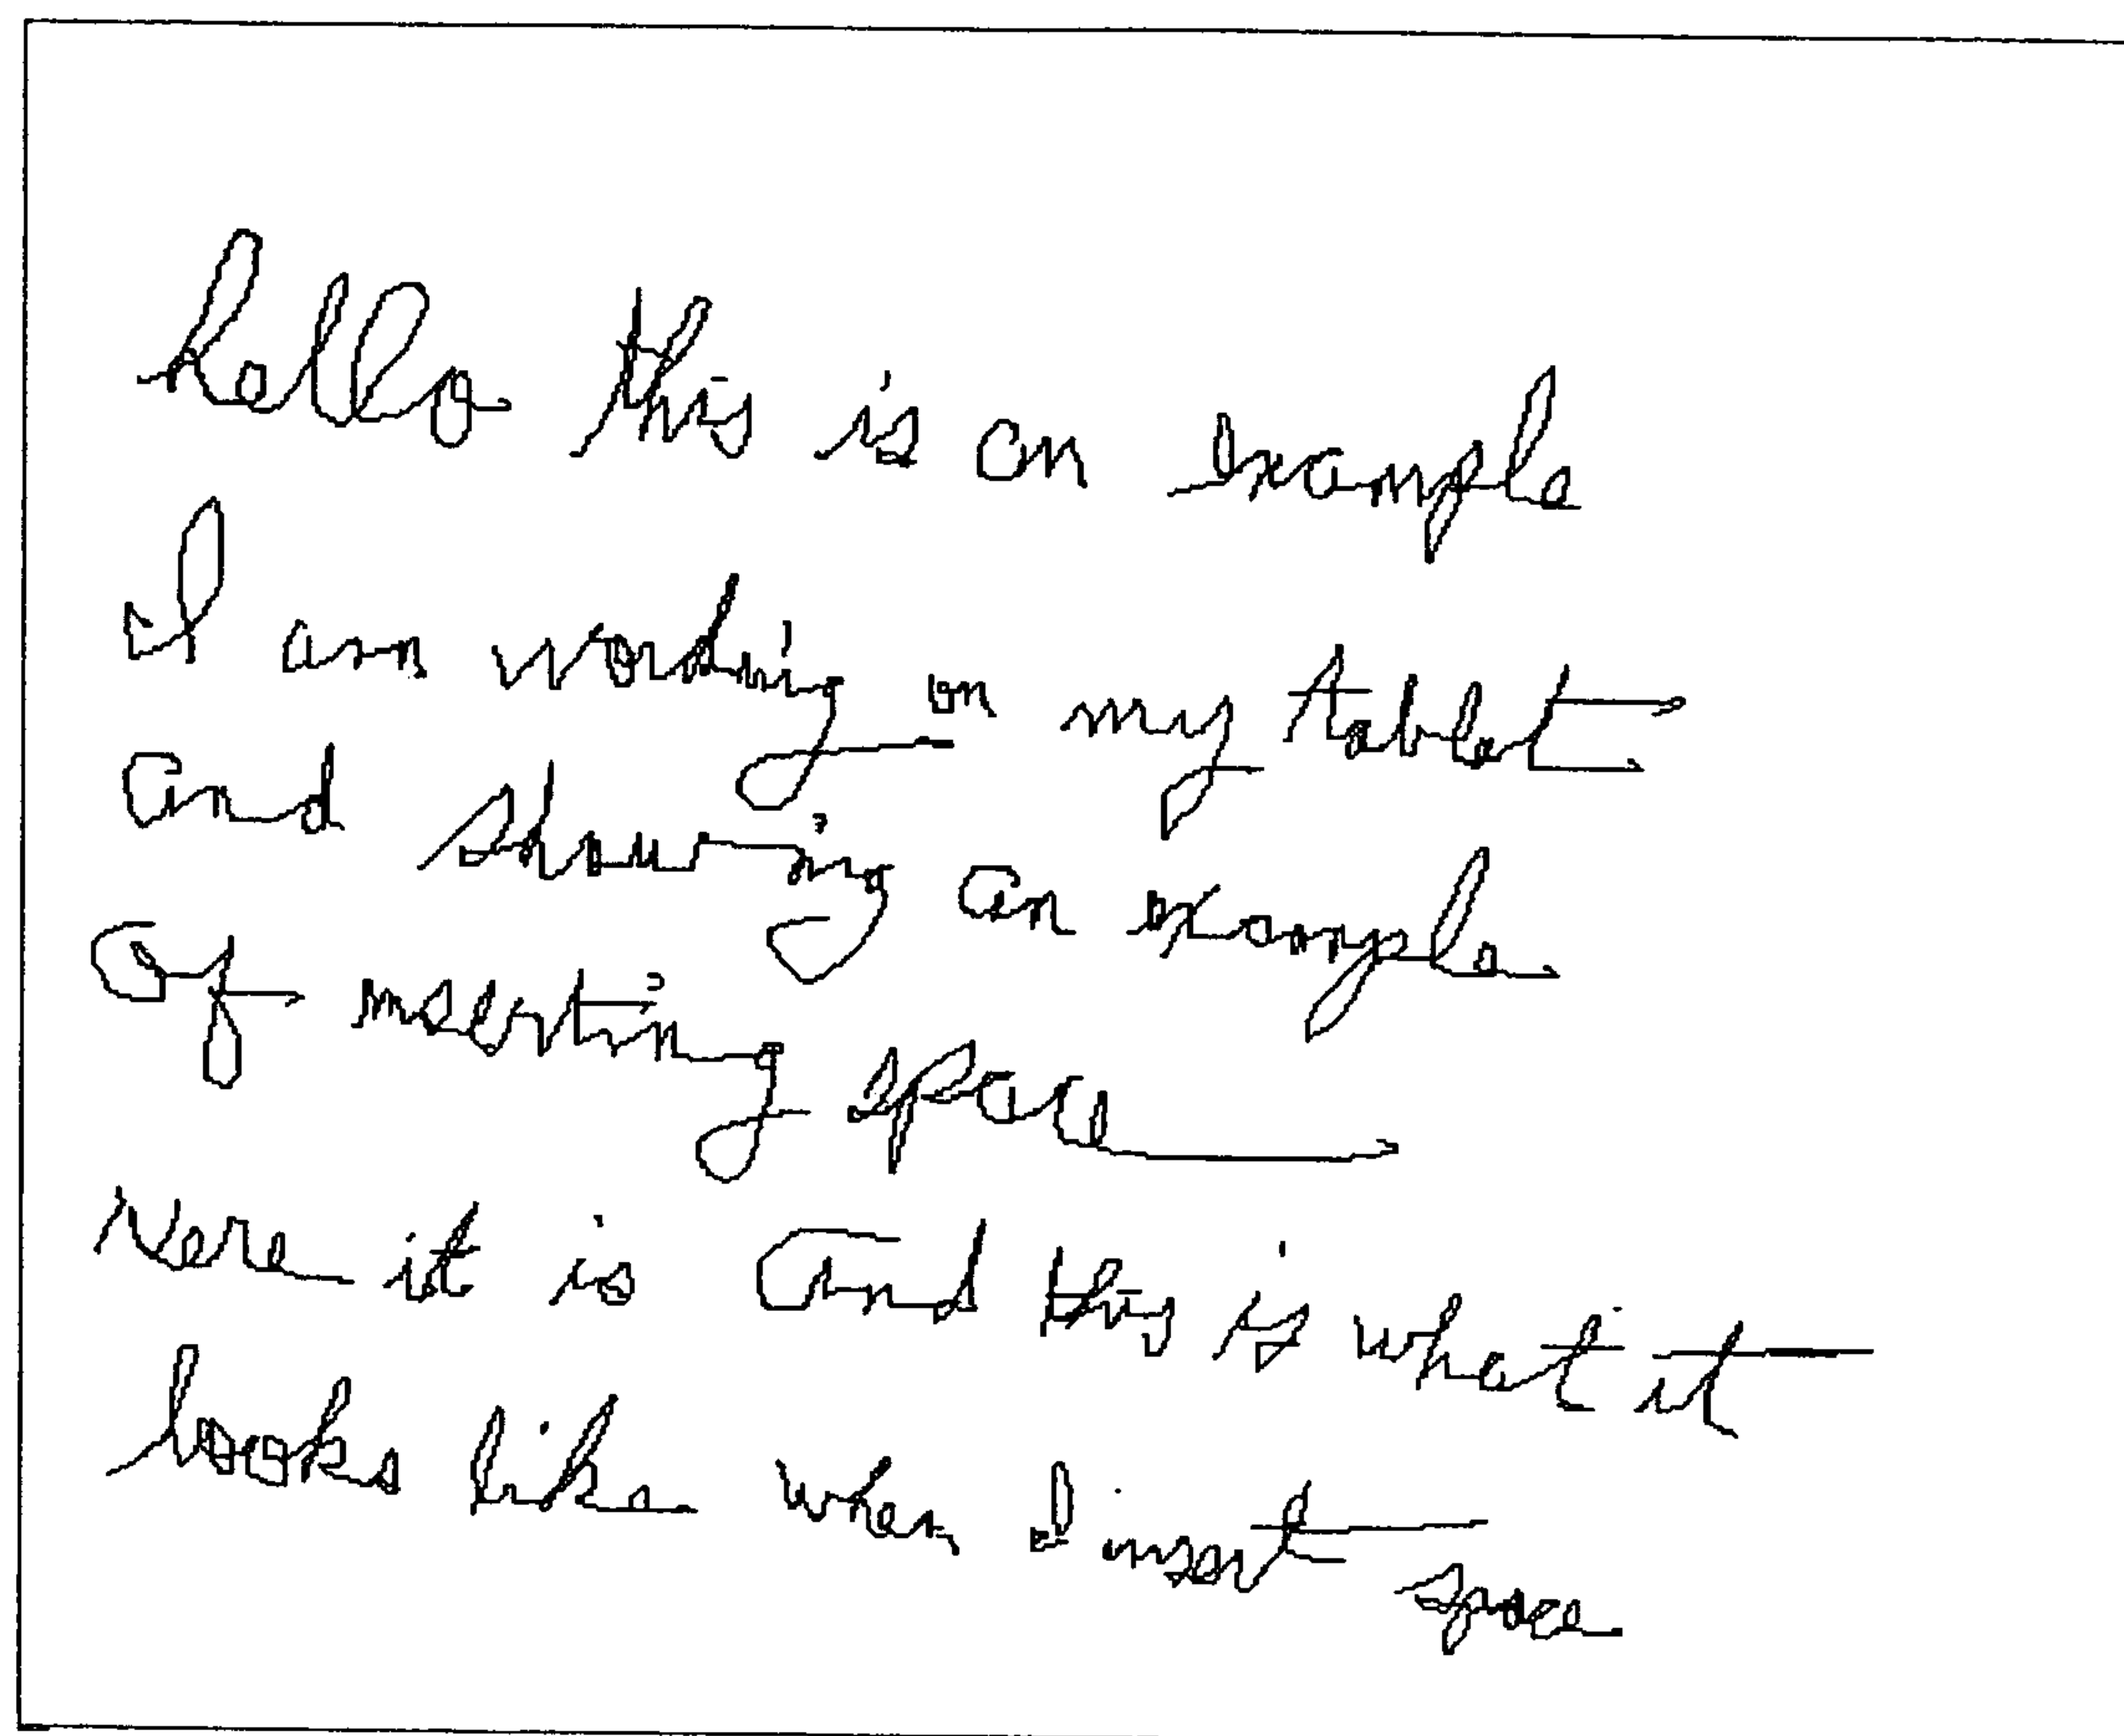 hello this is an example
I am working on my tablet
and showing an example
of inserting space
Here it is and this is what it
looks like when I insert space